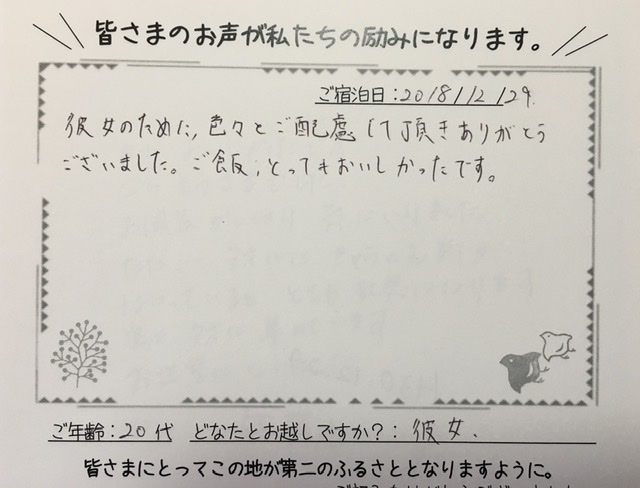 皆さまのお声が私たちの励みになります。
ご宿泊日：2018/12/29.
彼女のために、色々とご配慮して頂きありがとう
ございました。ご飯、とってもおいしかったです。
ご年齢：20代 どなたとお越しですか？：彼女、
皆さまにとってこの地が第二のふるさととなりますように。